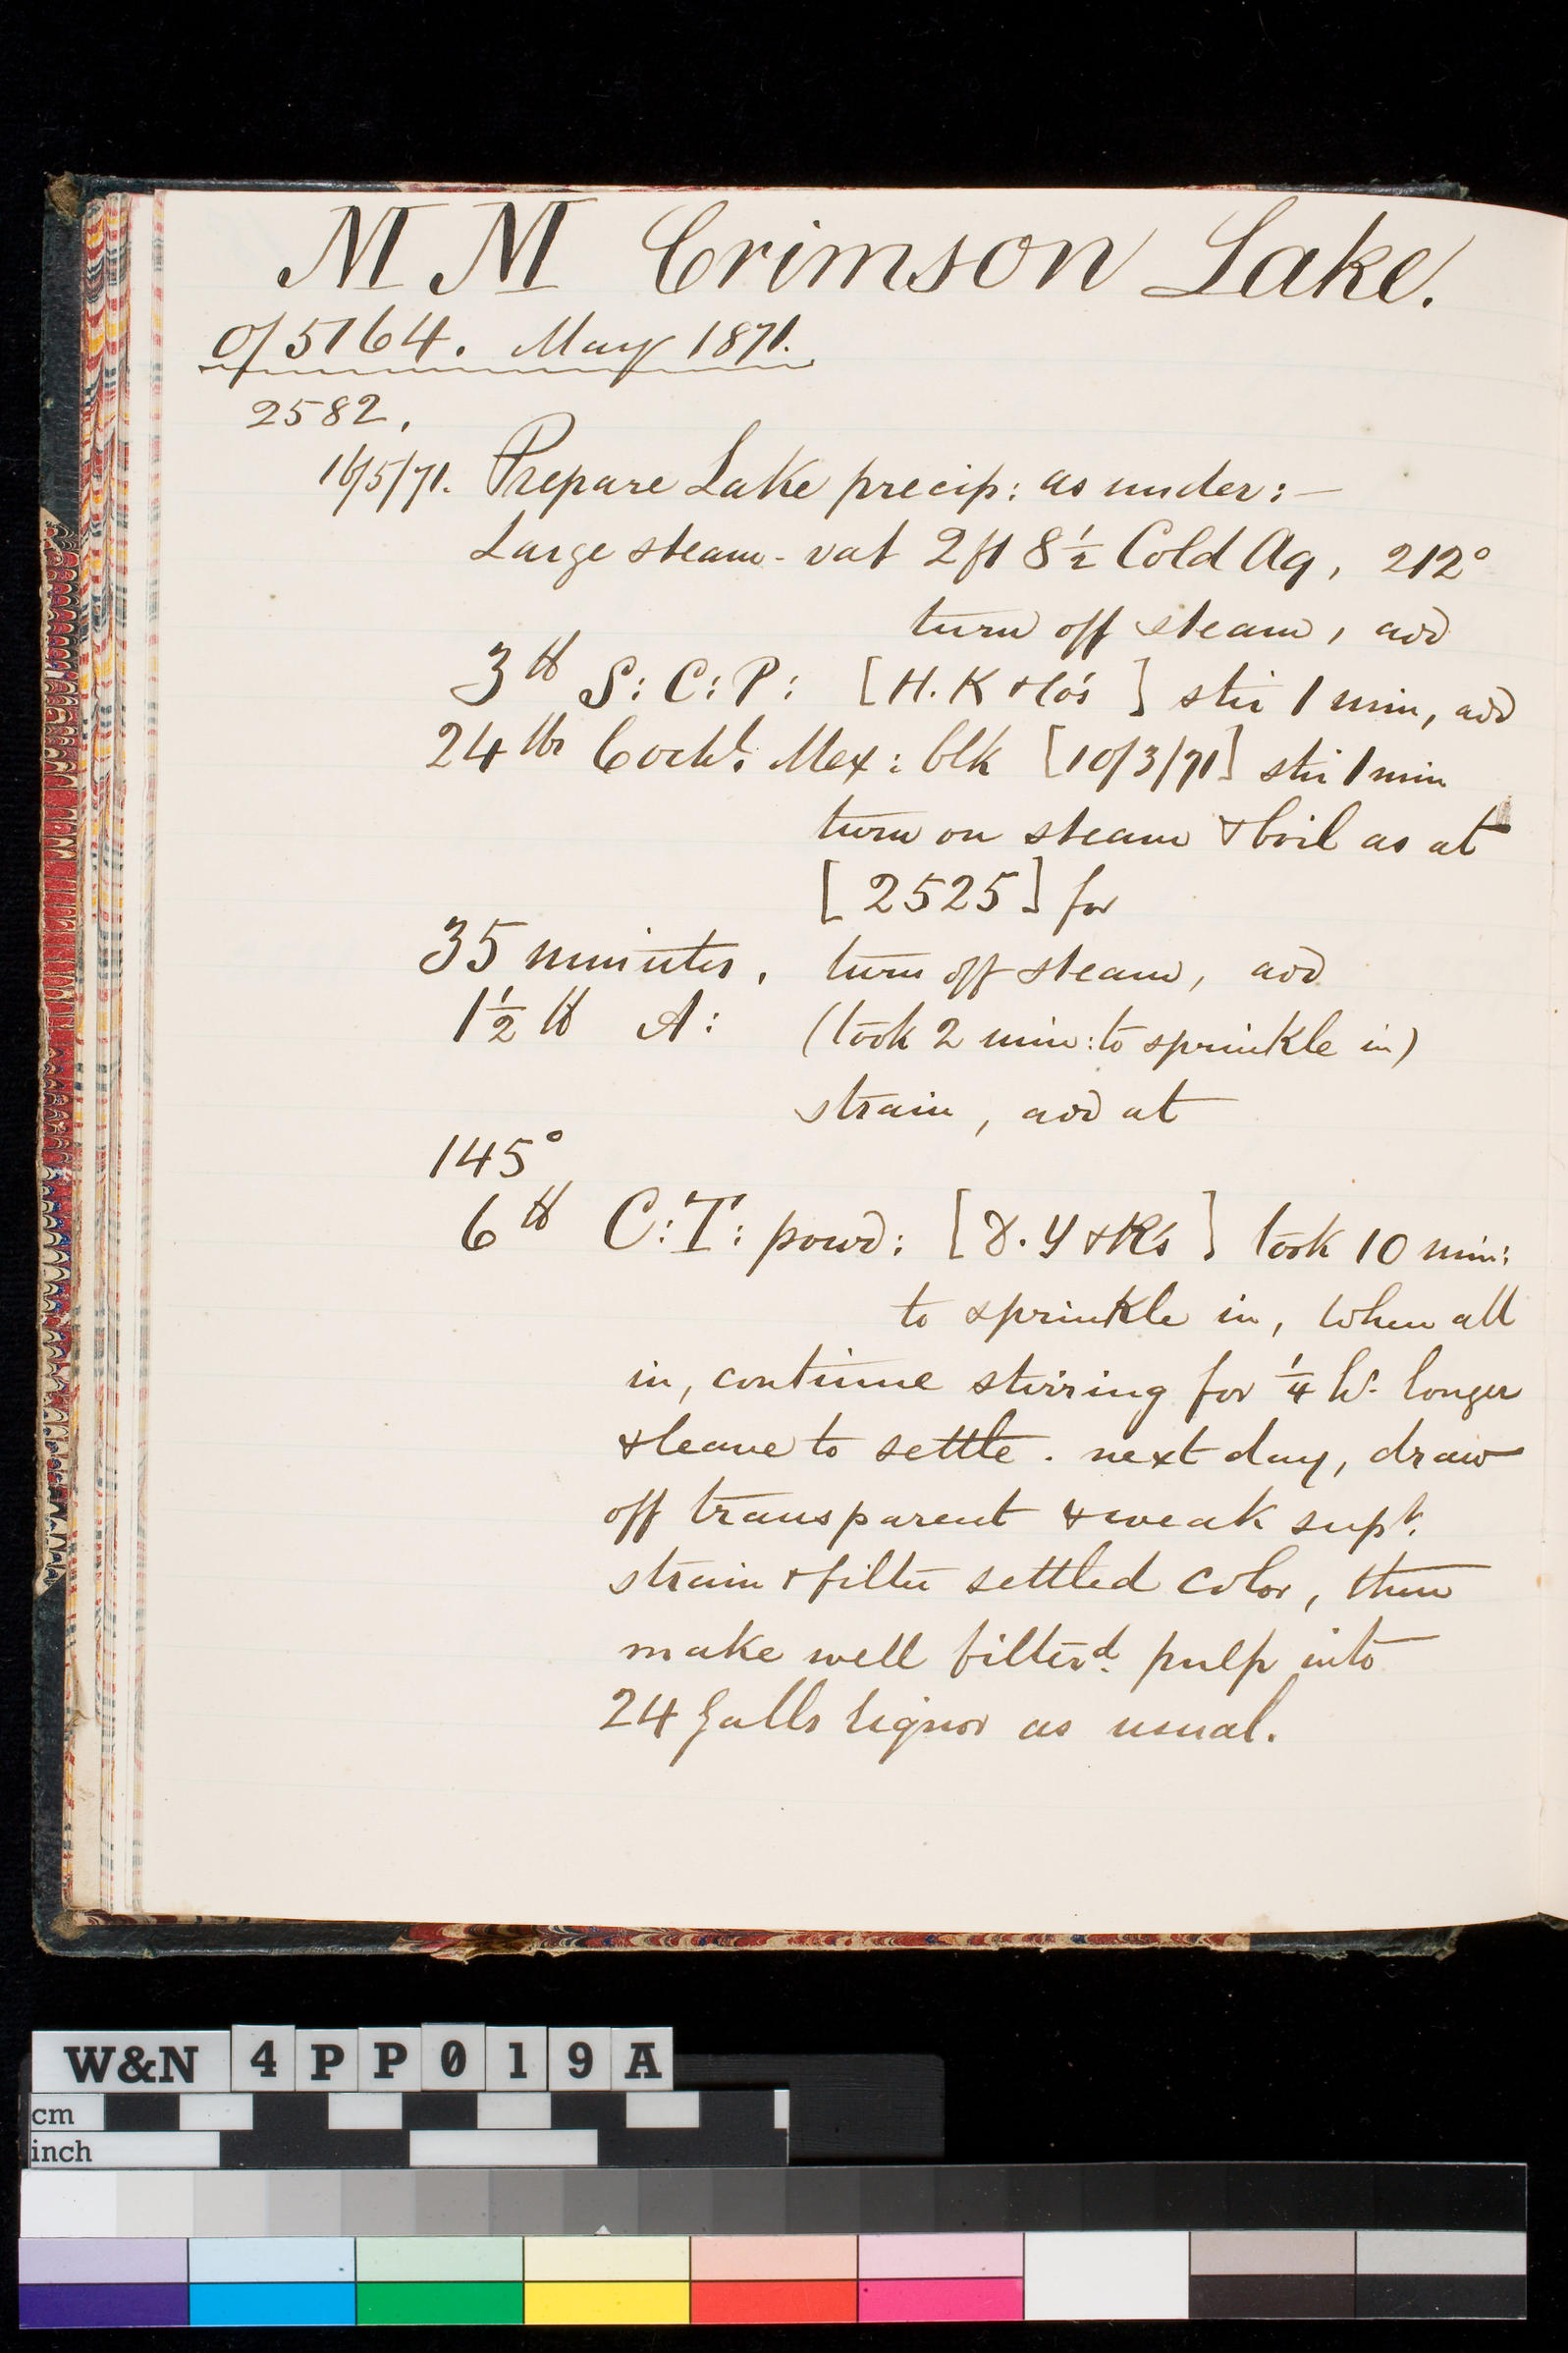 M M Crimson Lake.
O/5164. May 1871.
2582.
16/5/71. Prepare Lake precip: as under:—
Large steam-vat 2ft 8½ Cold Aq, 212°
turn off steam, add
3 lb S: C: P: [H. K & Co's] stir 1 min, add
24 lbs Cochl. Mex: blk [10/3/71] stir 1 min
turn on steam & boil as at
[2525] for
35 minutes. turn off steam, add
1½ lb A: (took 2 min: to sprinkle in)
strain, add at
145°
6 lb C: T: powd: [ . Y & R's] took 10 min:
to sprinkle in, when all
in, continue stirring for ¼ hr. longer
& leave to settle. next day, draw
off transparent & weak supt.
strain & filter settled color, then
make well filterd. pulp into
24 Galls liquor as usual.
W&N 4PP019A
cm
inch